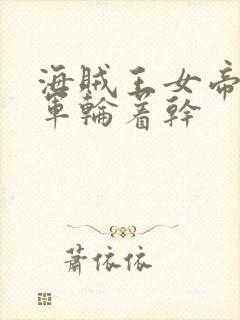 海賊王女帝
軍輪著幹
蕭依依